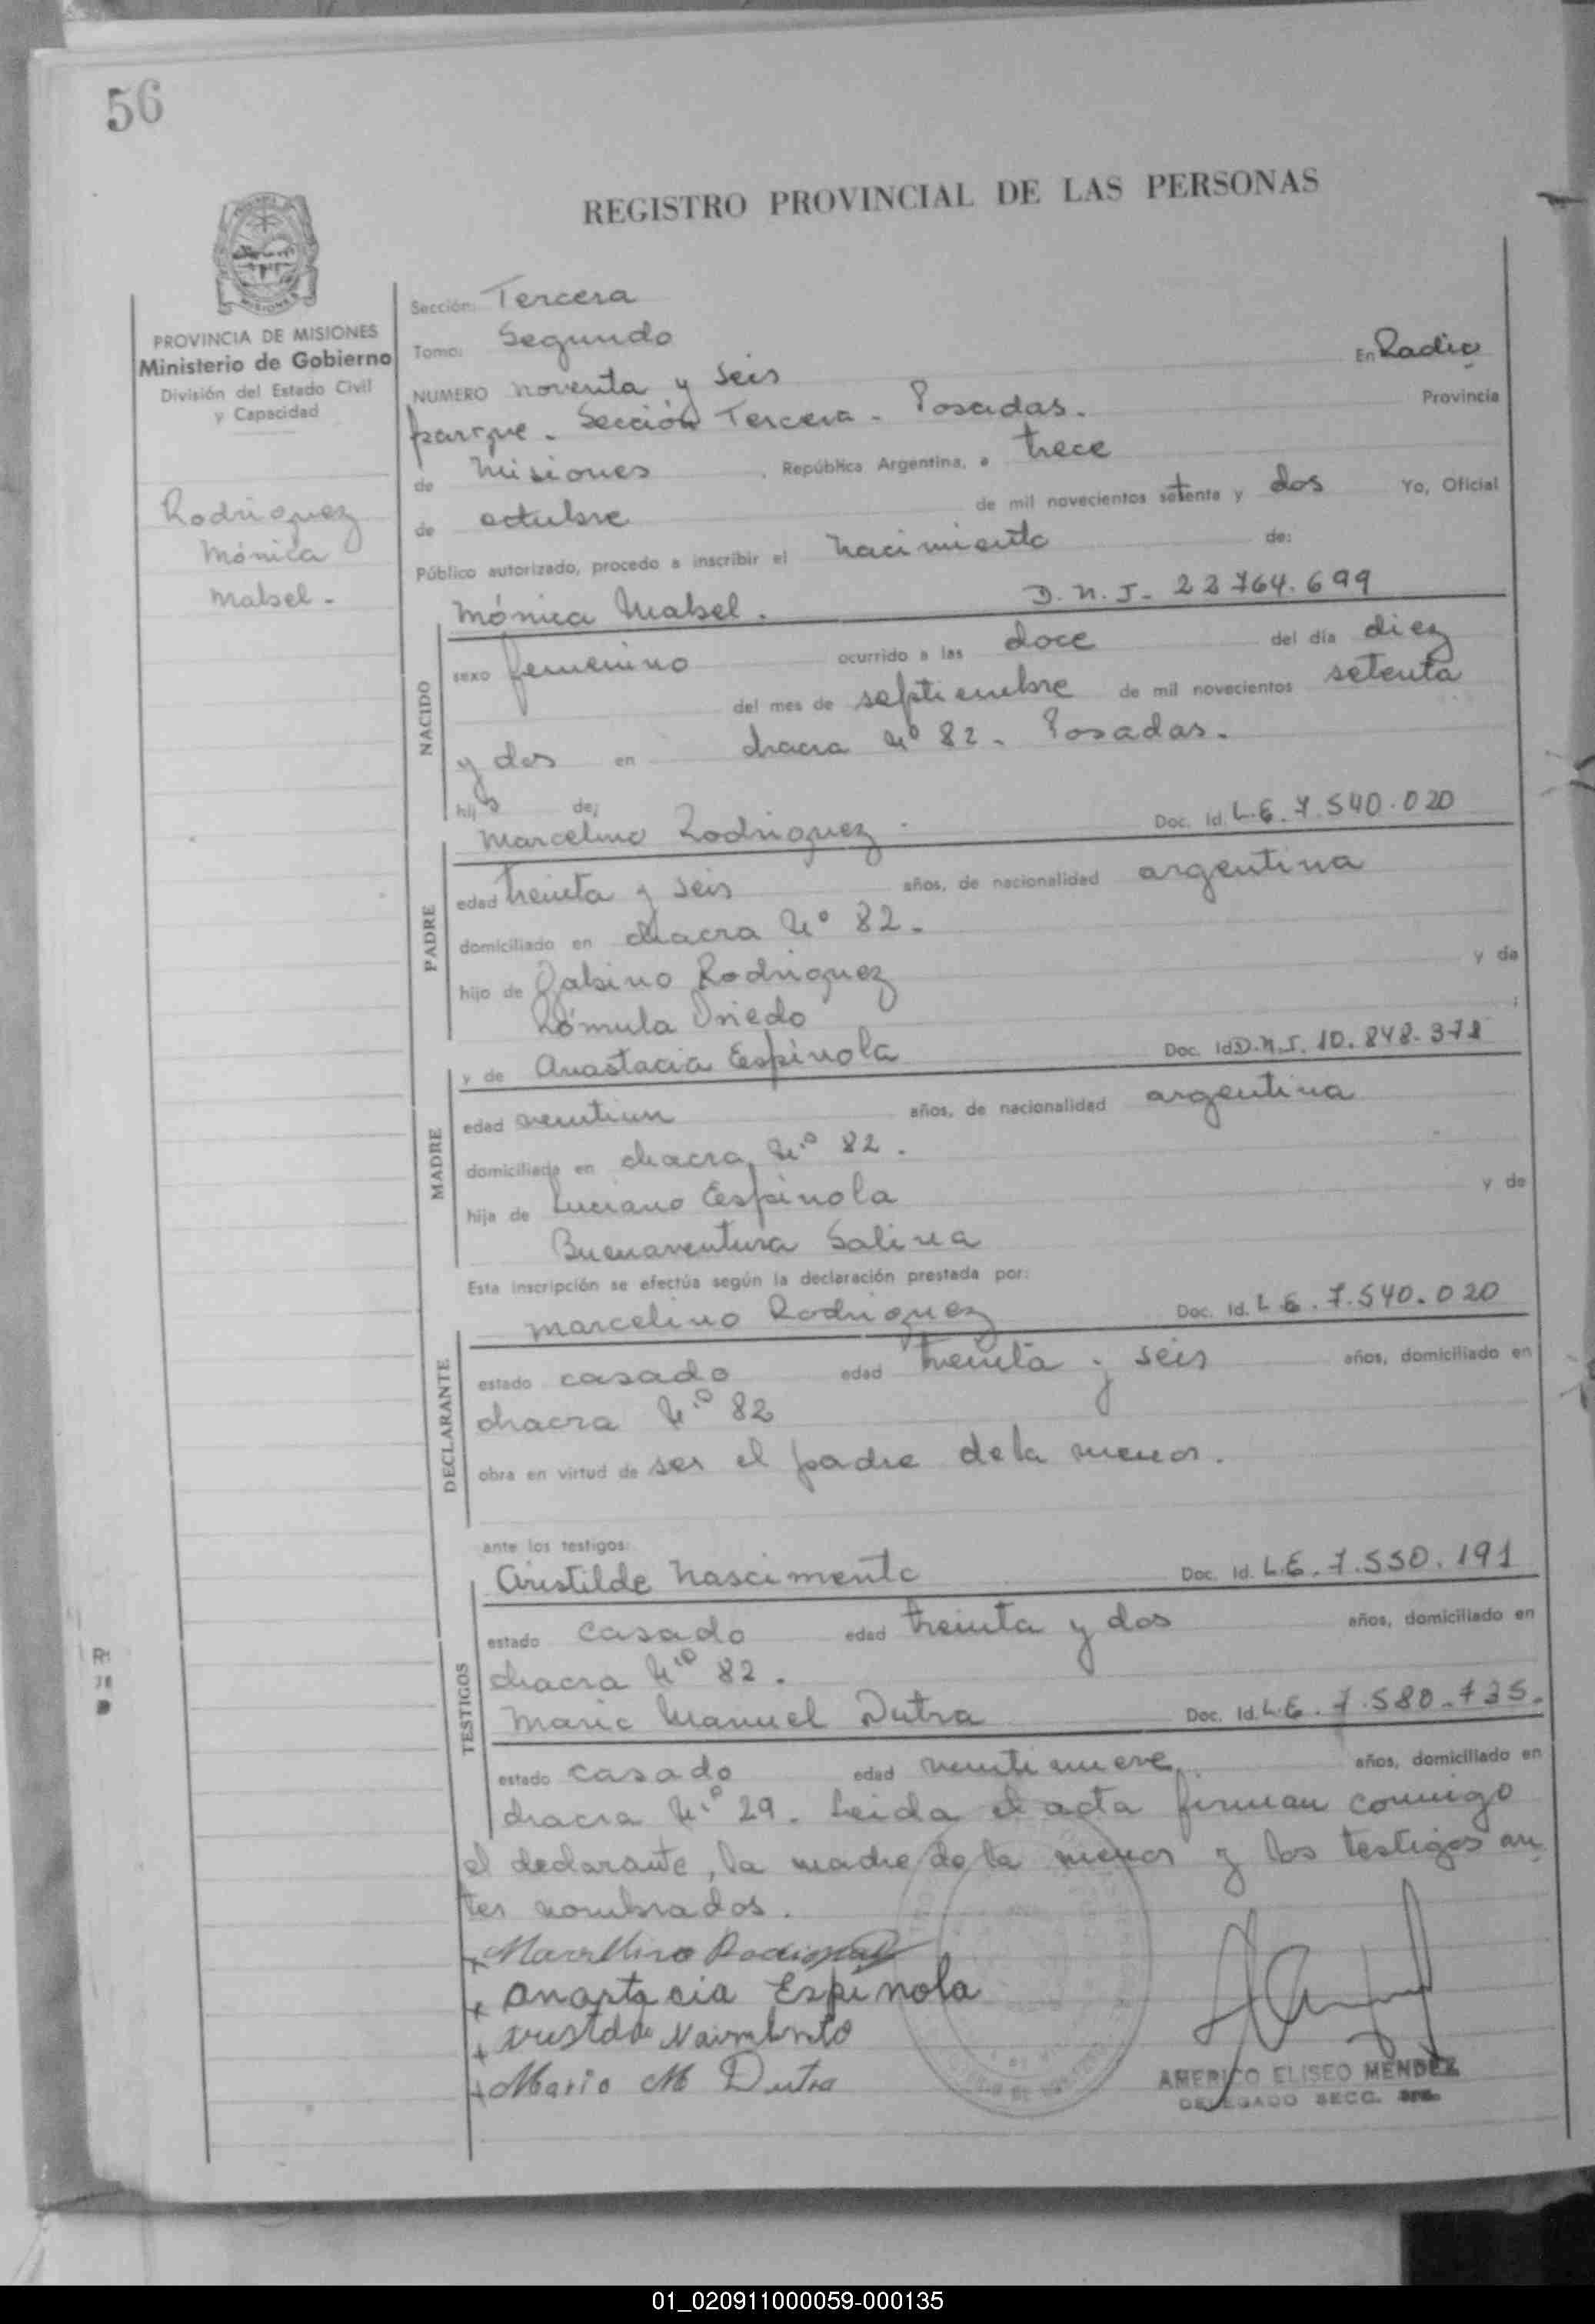 56
REGISTRO PROVINCIAL DE LAS PERSONAS
PROVINCIA DE MISIONES
Ministerio de Gobierno
División del Estado Civil
y Capacidad
Rodriguez
Mónica
Mabel -
Sección: Tercera
Tomo: Segundo
NUMERO noventa y seis En Radio
parque - Sección Tercera - Posadas. Provincia
de Misiones , República Argentina, a trece
de octubre de mil novecientos setenta y dos Yo, Oficial
Público autorizado, procedo a inscribir el nacimiento de:
Mónica Mabel. D.N.I. 22764.699
NACIDO
sexo femenino ocurrido a las doce del día diez
del mes de septiembre de mil novecientos setenta
y dos en chacra Nº 82 - Posadas.
hija de:
Marcelino Rodriguez Doc. Id. L.E. 7.540.020
PADRE
edad treinta y seis años, de nacionalidad argentina
domiciliado en chacra Nº 82.
hijo de Gabino Rodriguez y de
Rómula Oviedo ;
y de Anastacia Espínola Doc. Id D.N.I. 10.848.378
MADRE
edad veintiun años, de nacionalidad argentina
domiciliada en chacra Nº 82.
hija de Luciano Espínola y de
Buenaventura Salina
Esta inscripción se efectúa según la declaración prestada por:
Marcelino Rodriguez Doc. Id. L.E. 7.540.020
DECLARANTE
estado casado edad treinta y seis años, domiciliado en
chacra Nº 82
obra en virtud de ser el padre de la menor.
ante los testigos:
Aristilde Nascimento Doc. Id. L.E. 7.550.191
TESTIGOS
estado casado edad treinta y dos años, domiciliado en
chacra Nº 82.
Mario Manuel Dutra Doc. Id. L.E. 7.580.735.
estado casado edad veintinueve años, domiciliado en
chacra Nº 29. Leida el acta firman conmigo
el declarante, la madre de la menor y los testigos an
tes nombrados.
Marcelino Rodriguez
Anastacia Espinola
Mario M Dutra
AMERICO ELISEO MENDEZ
DELEGADO SECC. 3ra.
01_020911000059-000135